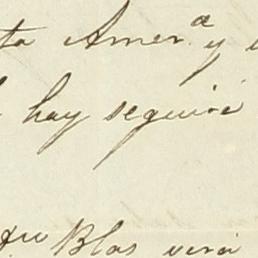 ta Amer.a y
hay seguiré
Blas verá